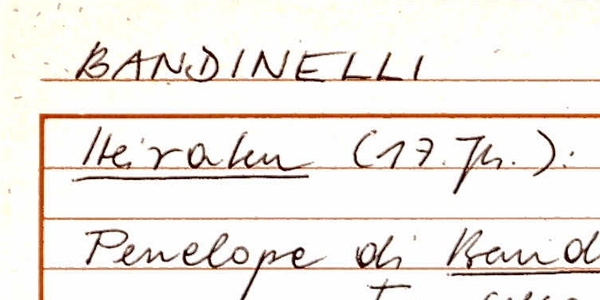 BANDINELLI
Heiraten (17. Jh.):
Penelope di Band